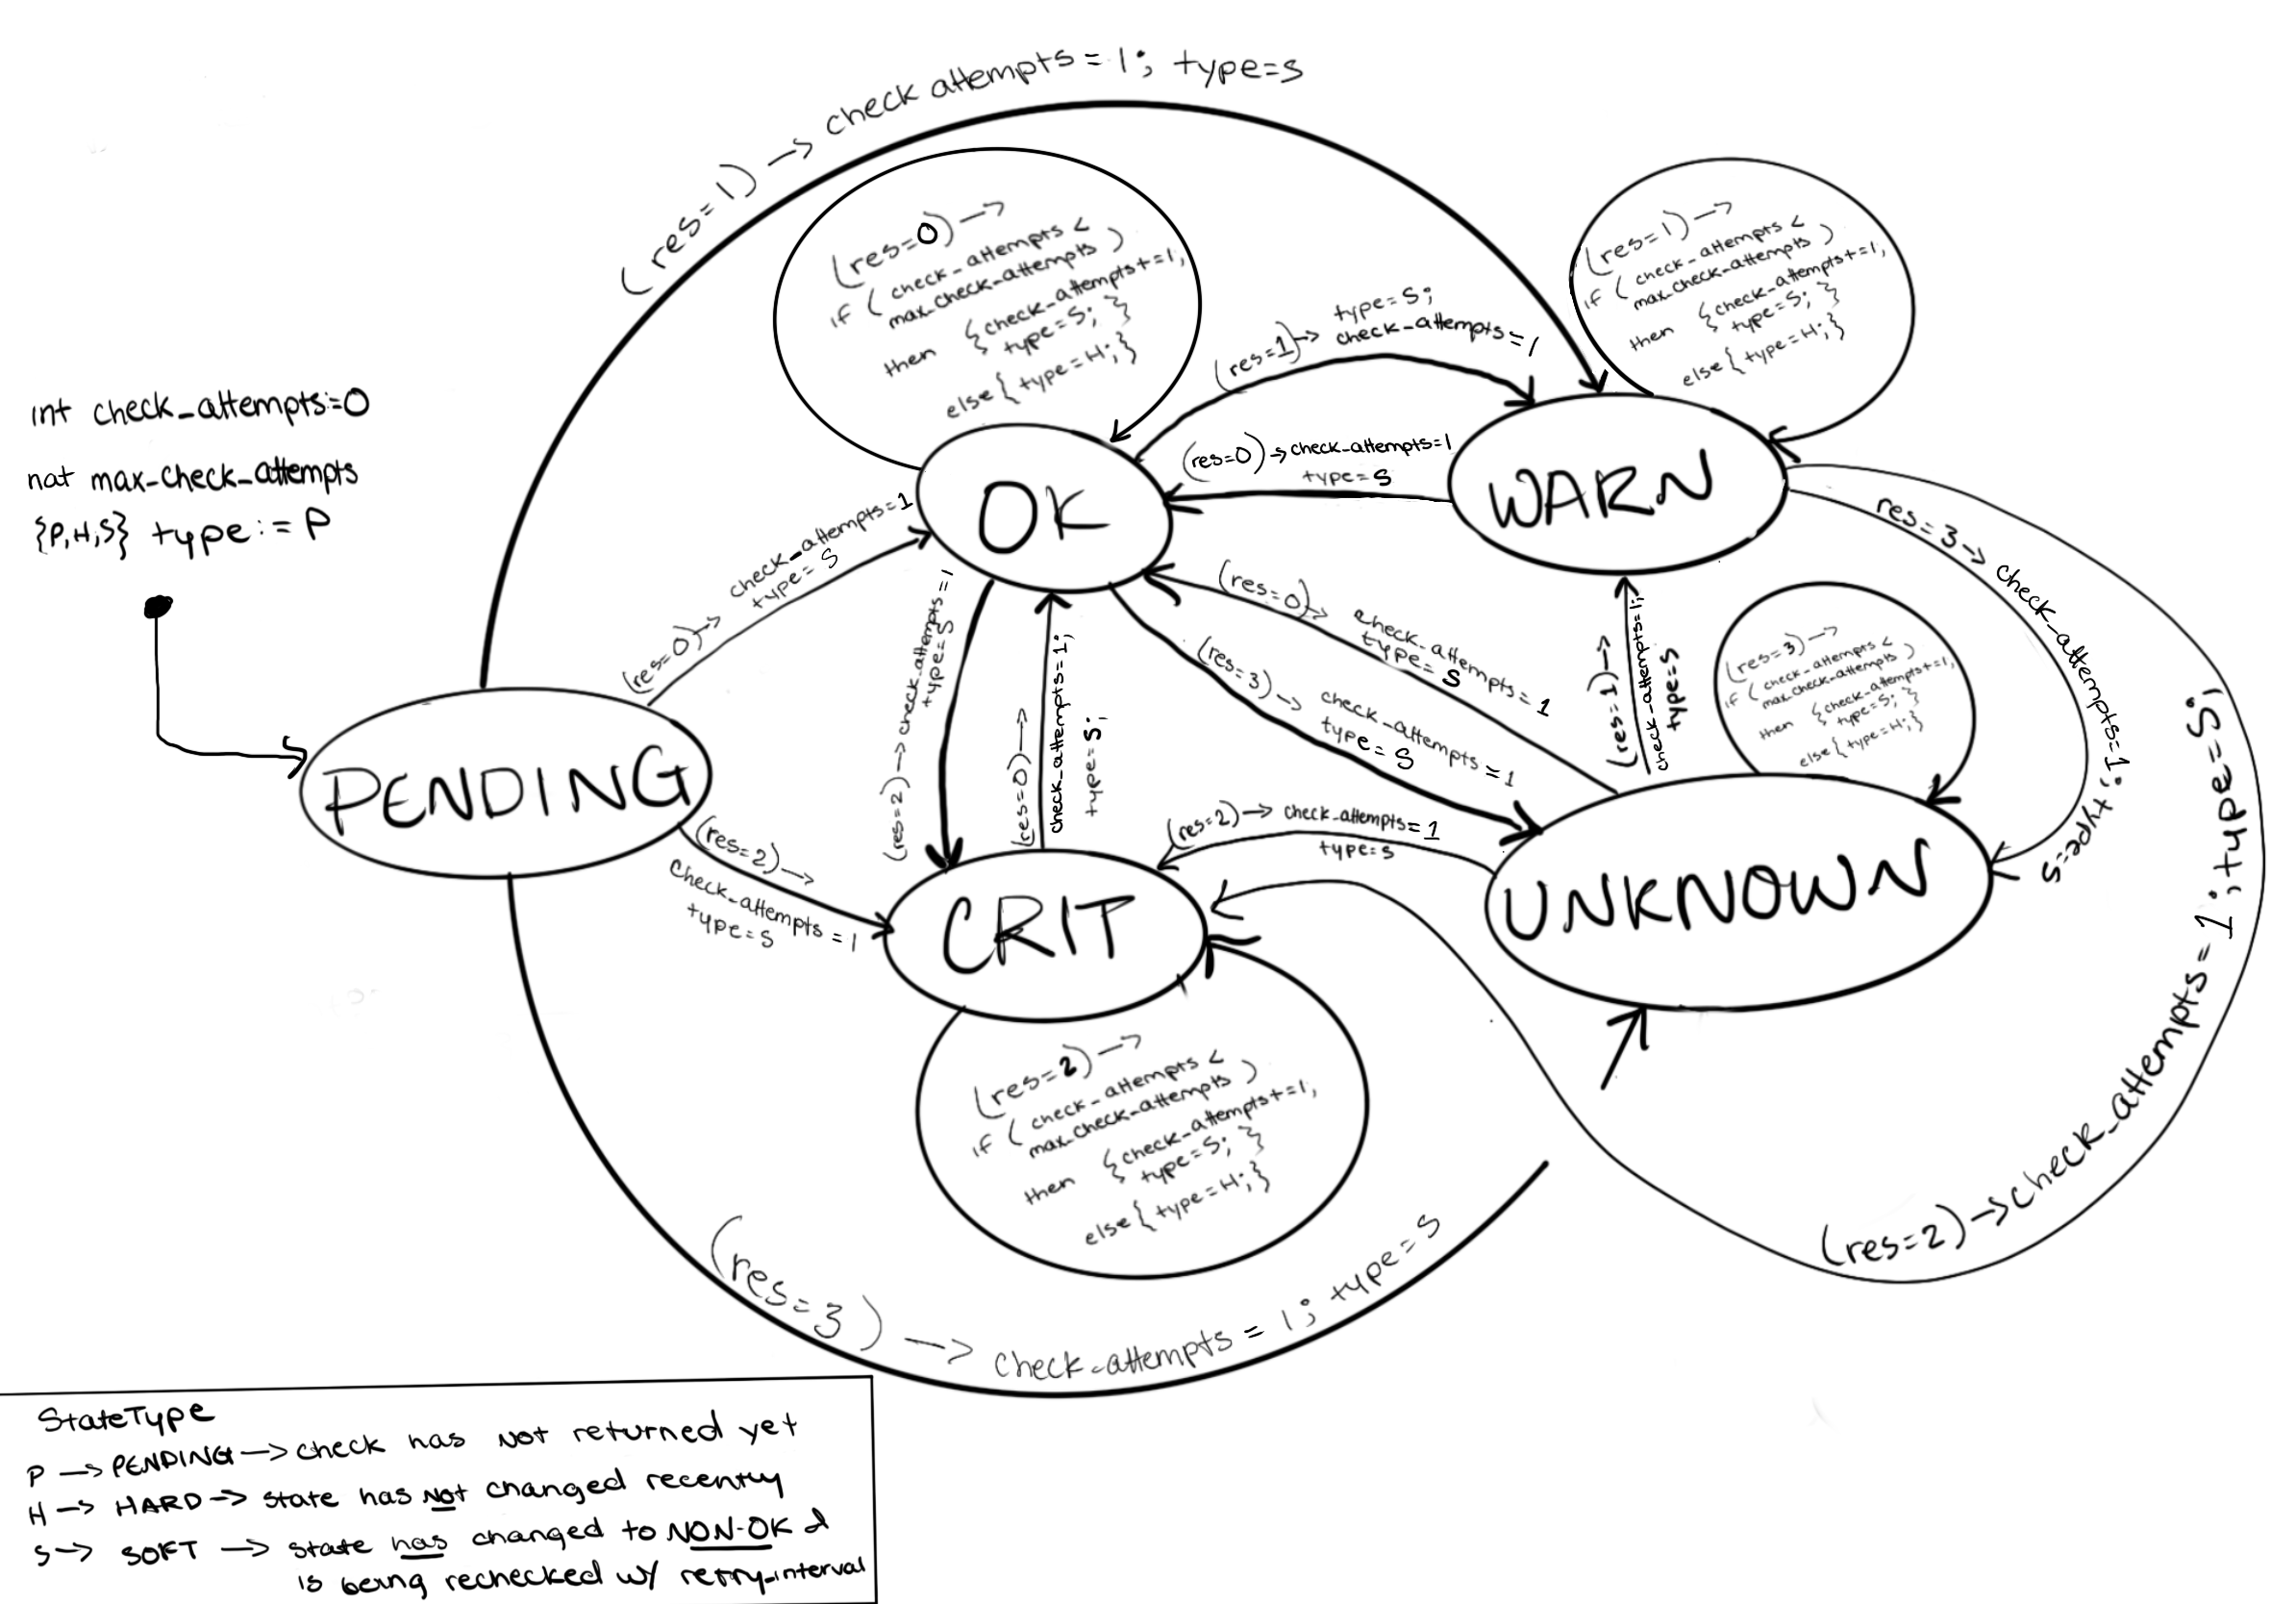 (res=1) → check attempts = 1; type=S
(res=0) →
if ( check_attempts <
max_check_attempts )
then { check_attempts+=1;
type=S; }
else { type=H; }
(res=1) →
if ( check_attempts <
max_check_attempts )
then { check_attempts+=1;
type=S; }
else { type=H; }
(res=1) → type=S;
check_attempts=1
int check_attempts:=0
nat max_check_attempts
{P,H,S} type:=P
(res=0) → check_attempts=1
type=S
OK
WARN
(res=0) → check_attempts=1
type=S
res=3 → check_attempts=1; type=S
(res=2) → check_attempts=1
type=S
(res=0) →
check_attempts=1;
type=S;
(res=0) → check_attempts=1
type=S
(res=3) → check_attempts=1
type=S
(res=1) →
check_attempts=1;
type=S
(res=3) →
if ( check_attempts <
max_check_attempts )
then { check_attempts+=1;
type=S; }
else { type=H; }
PENDING
(res=2) →
check_attempts=1
type=S
(res=2) → check_attempts=1
type=S
CRIT
UNKNOWN
(res=2) →
if ( check_attempts <
max_check_attempts )
then { check_attempts+=1;
type=S; }
else { type=H; }
(res=2) → check_attempts=1; type=S;
(res=3) → check_attempts = 1; type=S
StateType
P → PENDING → check has NOT returned yet
H → HARD → state has NOT changed recently
S → SOFT → state has changed to NON-OK &
is being rechecked w/ retry_interval